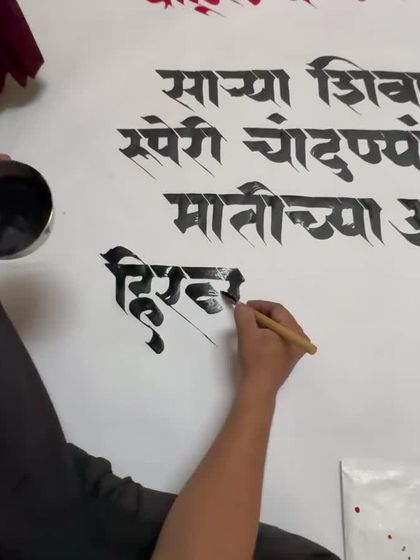 साऱ्या शिवा
स्पेरी चांदण्यां
मातीच्या
हिरव